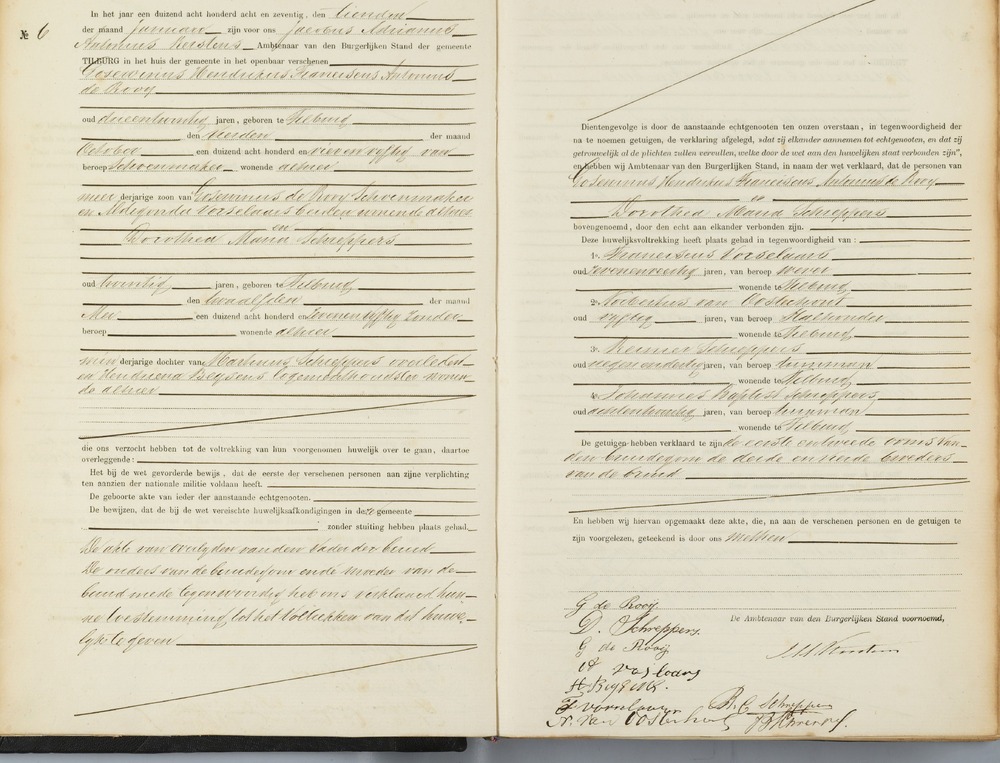 № 6
In het jaar een duizend acht honderd acht en zeventig, den tienden
der maand Januari zijn voor ons Jacobus Adrianus
Antonius Kerstens Ambtenaar van den Burgerlijken Stand der gemeente
TILBURG in het huis der gemeente in het openbaar verschenen
Gosewinus Hendrikus Franciscus Antonius
de Rooy
oud drieentwintig jaren, geboren te Tilburg
den vierden der maand
October een duizend acht honderd en vier en vyftig van
beroep Schoenmaker wonende alhier
meer derjarige zoon van Gosewinus de Rooy Schoenmaker
en Aldegonda Vorselaars beiden wonende alhier
en
Dorothea Maria Schreppers
oud twintig jaren, geboren te Tilburg
den twaalfden der maand
Mei een duizend acht honderd en zevenenvyftig zonder
beroep wonende alhier
min derjarige dochter van Martinus Schreppers overleden
en Hendriena Beysens wonen
de alhier
die ons verzocht hebben tot de voltrekking van hun voorgenomen huwelijk over te gaan, daartoe
overleggende:
Het bij de wet gevorderde bewijs, dat de eerste der verschenen personen aan zijne verplichting
ten aanzien der nationale militie voldaan heeft.
De geboorte akte van ieder der aanstaande echtgenooten.
De bewijzen, dat de bij de wet vereischte huwelijksafkondigingen in deze gemeente
zonder stuiting hebben plaats gehad.
De akte van overlyden van den vader der bruid
De ouders van de bruidegom en de moeder van de
bruid mede tegenwoordig heb ons verklaard hun
ne toestemming tot het voltrekken van dit huwe-
lyk te geven
Dientengevolge is door de aanstaande echtgenooten ten onzen overstaan, in tegenwoordigheid der
na te noemen getuigen, de verklaring afgelegd, »dat zij elkander aannemen tot echtgenooten, en dat zij
getrouwelijk al de plichten zullen vervullen, welke door de wet aan den huwelijken staat verbonden zijn",
en hebben wij Ambtenaar van den Burgerlijken Stand, in naam der wet verklaard, dat de personen van
Gosewinus Hendrikus Franciscus Antonius de Rooy
en
Dorothea Maria Schreppers
bovengenoemd, door den echt aan elkander verbonden zijn.
Deze huwelijksvoltrekking heeft plaats gehad in tegenwoordigheid van:
1e. Franciscus Vorselaars
oud zevenenveertig jaren, van beroep wever
wonende te Tilburg
2e. Norbertus van Oosterhout
oud vyftig jaren, van beroep
wonende te Tilburg
3e. Reinier Schreppers
oud negenendertig jaren, van beroep timmerman
wonende te Tilburg
4e. Johannes Baptist Schreppers
oud achtentwintig jaren, van beroep timmerman
wonende te Tilburg
De getuigen hebben verklaard te zijn de eerste en tweede ooms van
den bruidegom de derde en vierde broeders
van de bruid
En hebben wij hiervan opgemaakt deze akte, die, na aan de verschenen personen en de getuigen te
zijn voorgelezen, geteekend is door ons met hen
De Ambtenaar van den Burgerlijken Stand voornoemd,
G de Rooy.
D. Schreppers.
G de Rooij
H Beysens.
F vorselaars
N. van Oosterhout